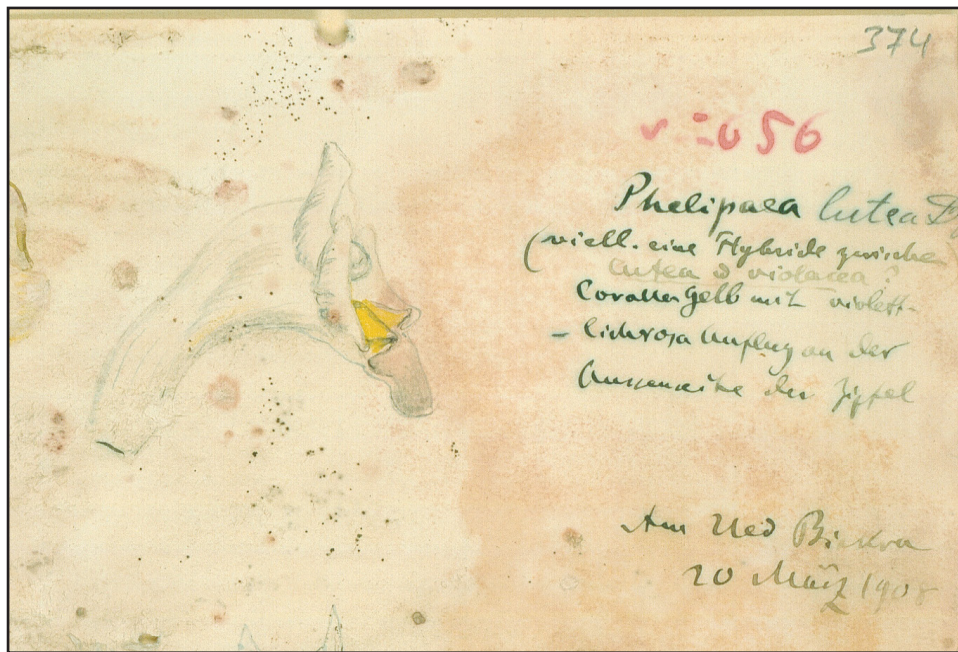 374
056
Phelipaea lutea
(viell. eine Hybride zwischen
lutea & violacea?
Corolle Gelb mit violett-
- lichrosa Anflug an der
Aussenseite der Zipfel
Am Ued Biskra
20 März 1908